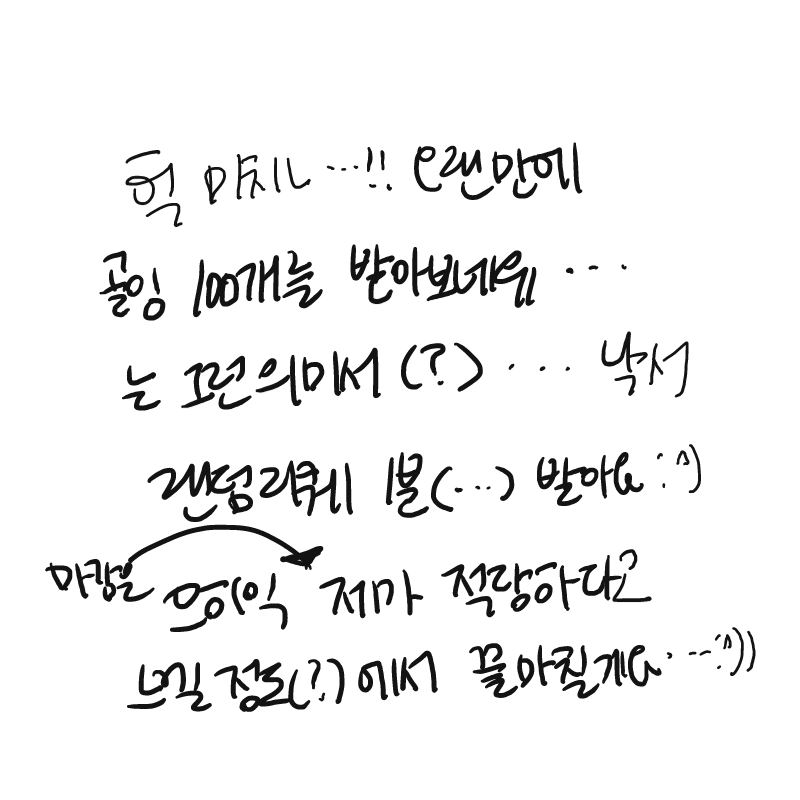 헉 마지ㄴ...!! 오랜만에
골잉 100개를 받아보네웨...
는 그런 의미서 (?)... 낙서
랜덤리퀘 1분(...) 받아요 :^)
마캉은
으히익 저가 적당하다고
느낄 정도(?)에서 끝마칠게요...:^))